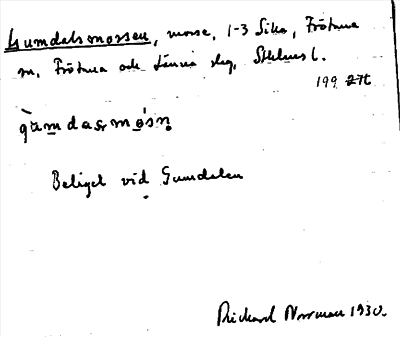 Gumdalsmossen, mosse, 1-3 Siko, Frötuna
sn, Frötuna och Länna skg, Sthlms l.
199 27t
gùmdasmósṇ
Beläget vid Gumdalen
Rickard Norrman 1930.